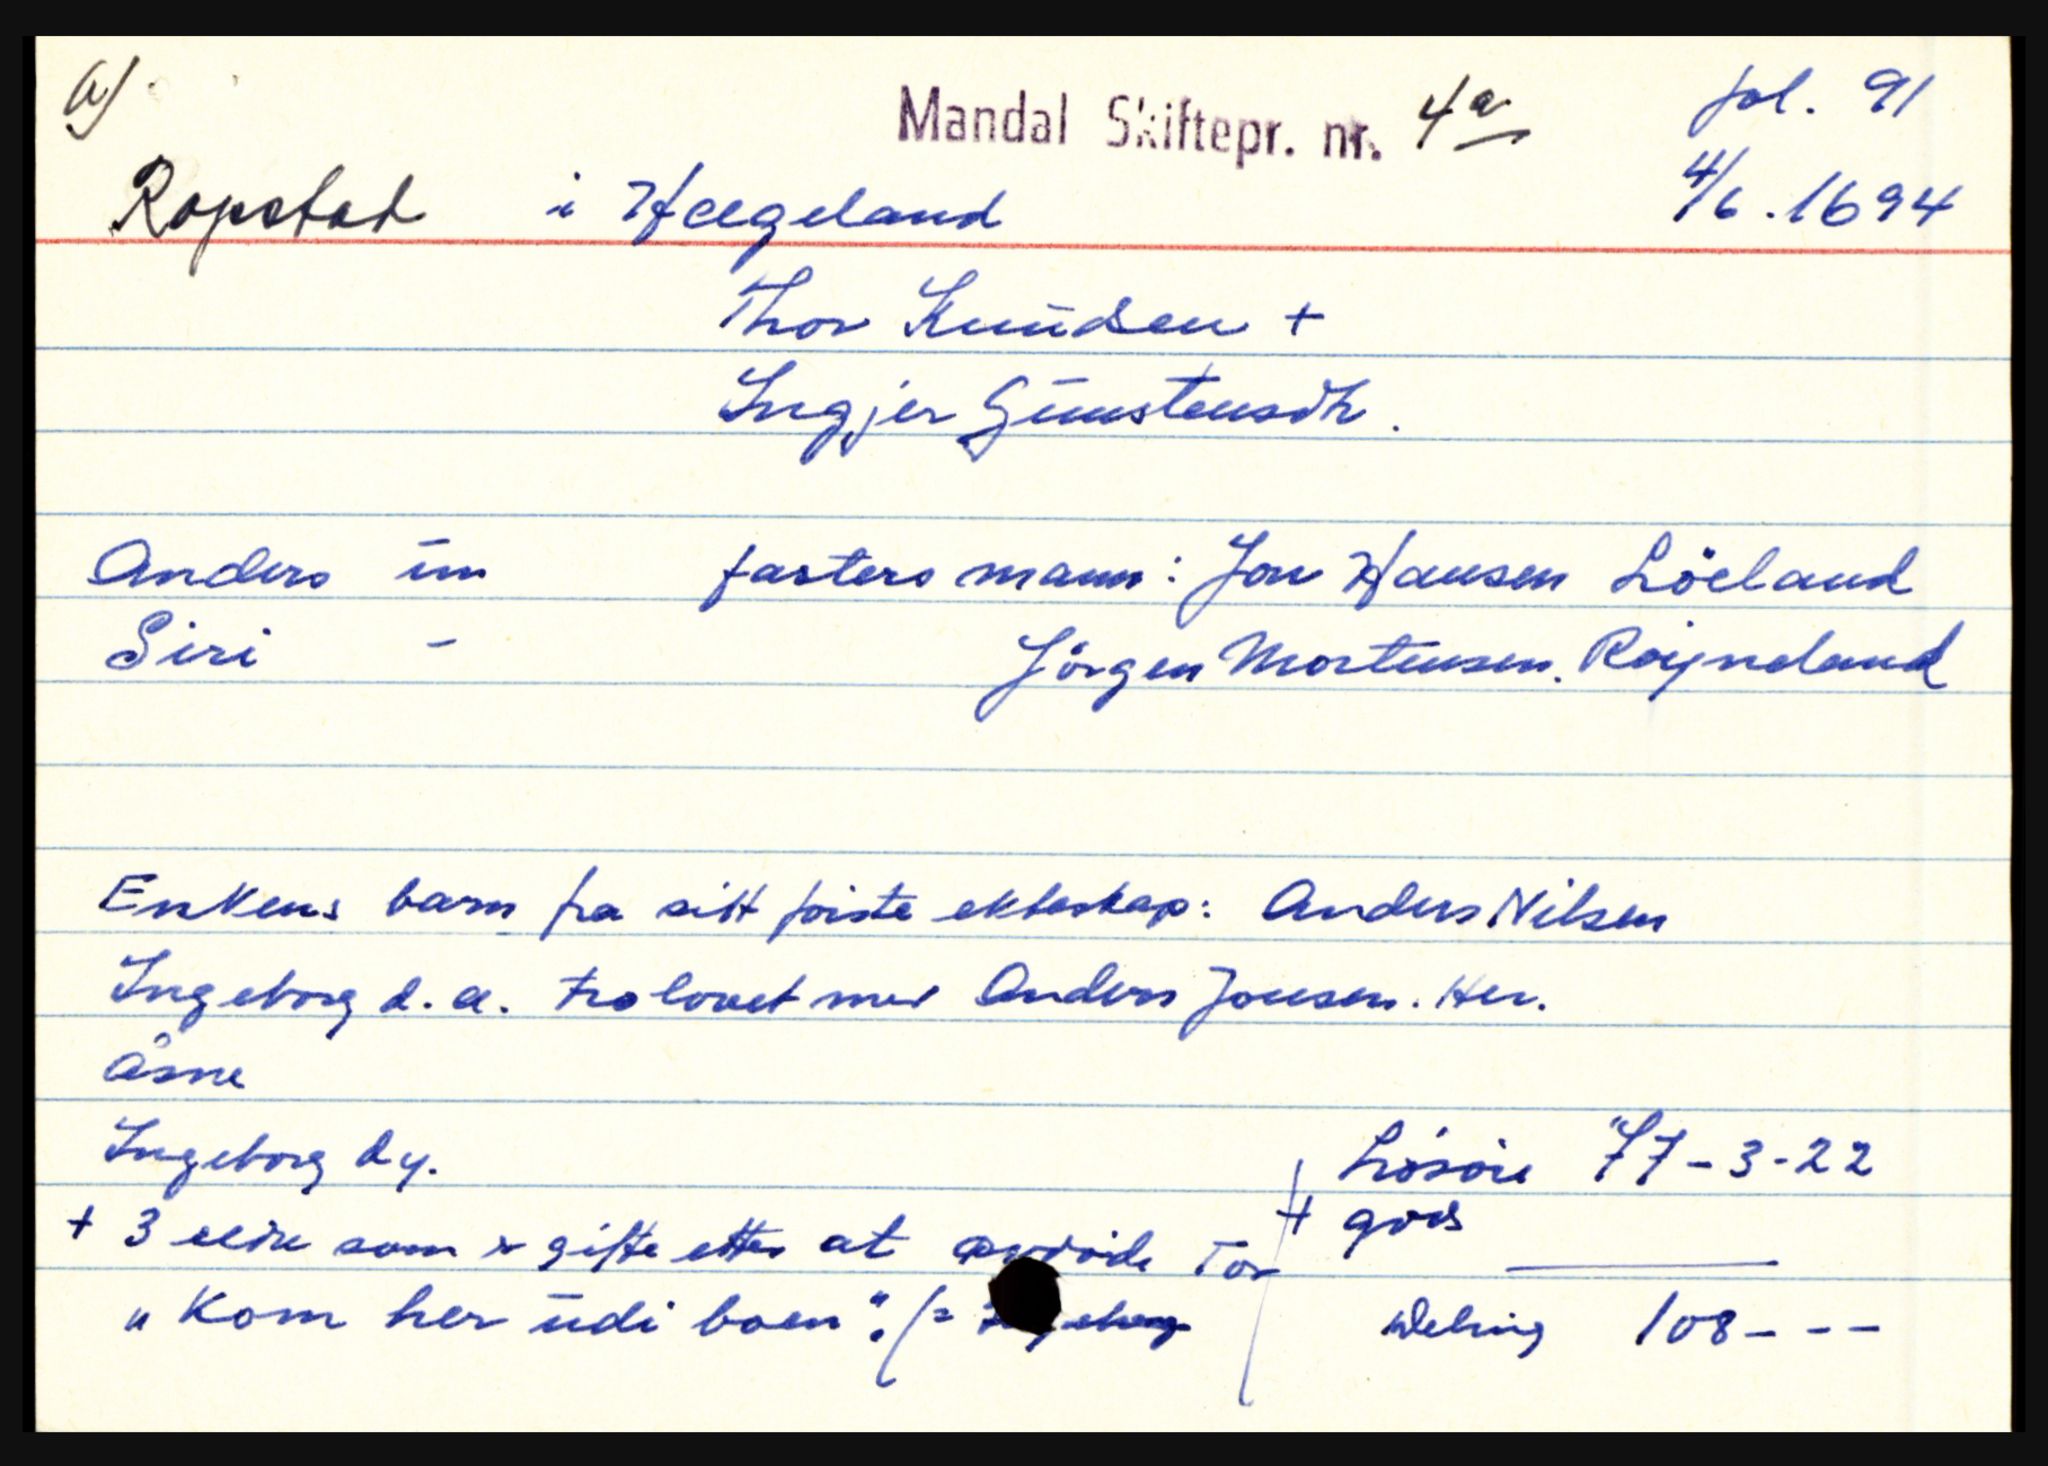 a)
Mandal Skiftepr. nr. 4a fol. 91
Ropstad i Hægeland 4/6. 1694
Thor Knudsen +
Ingjer Gunstensdtr.
Anders um fasters mann: Jon Hansen Löeland
Siri - Jörgen Mortensen. Röyneland
Enkens barn fra sitt förste ekteskap: Anders Nilsen
Ingeborg d. æ. trolovet med Anders Jonsen. Her.
Åsne
Ingeborg d y.
Lösöre 77-3-22
+ 3 eldre som er gifte etter at avdöde Tor + gods
„Kom her udi boen". (= Ingeborg
Udelning 108 - - -